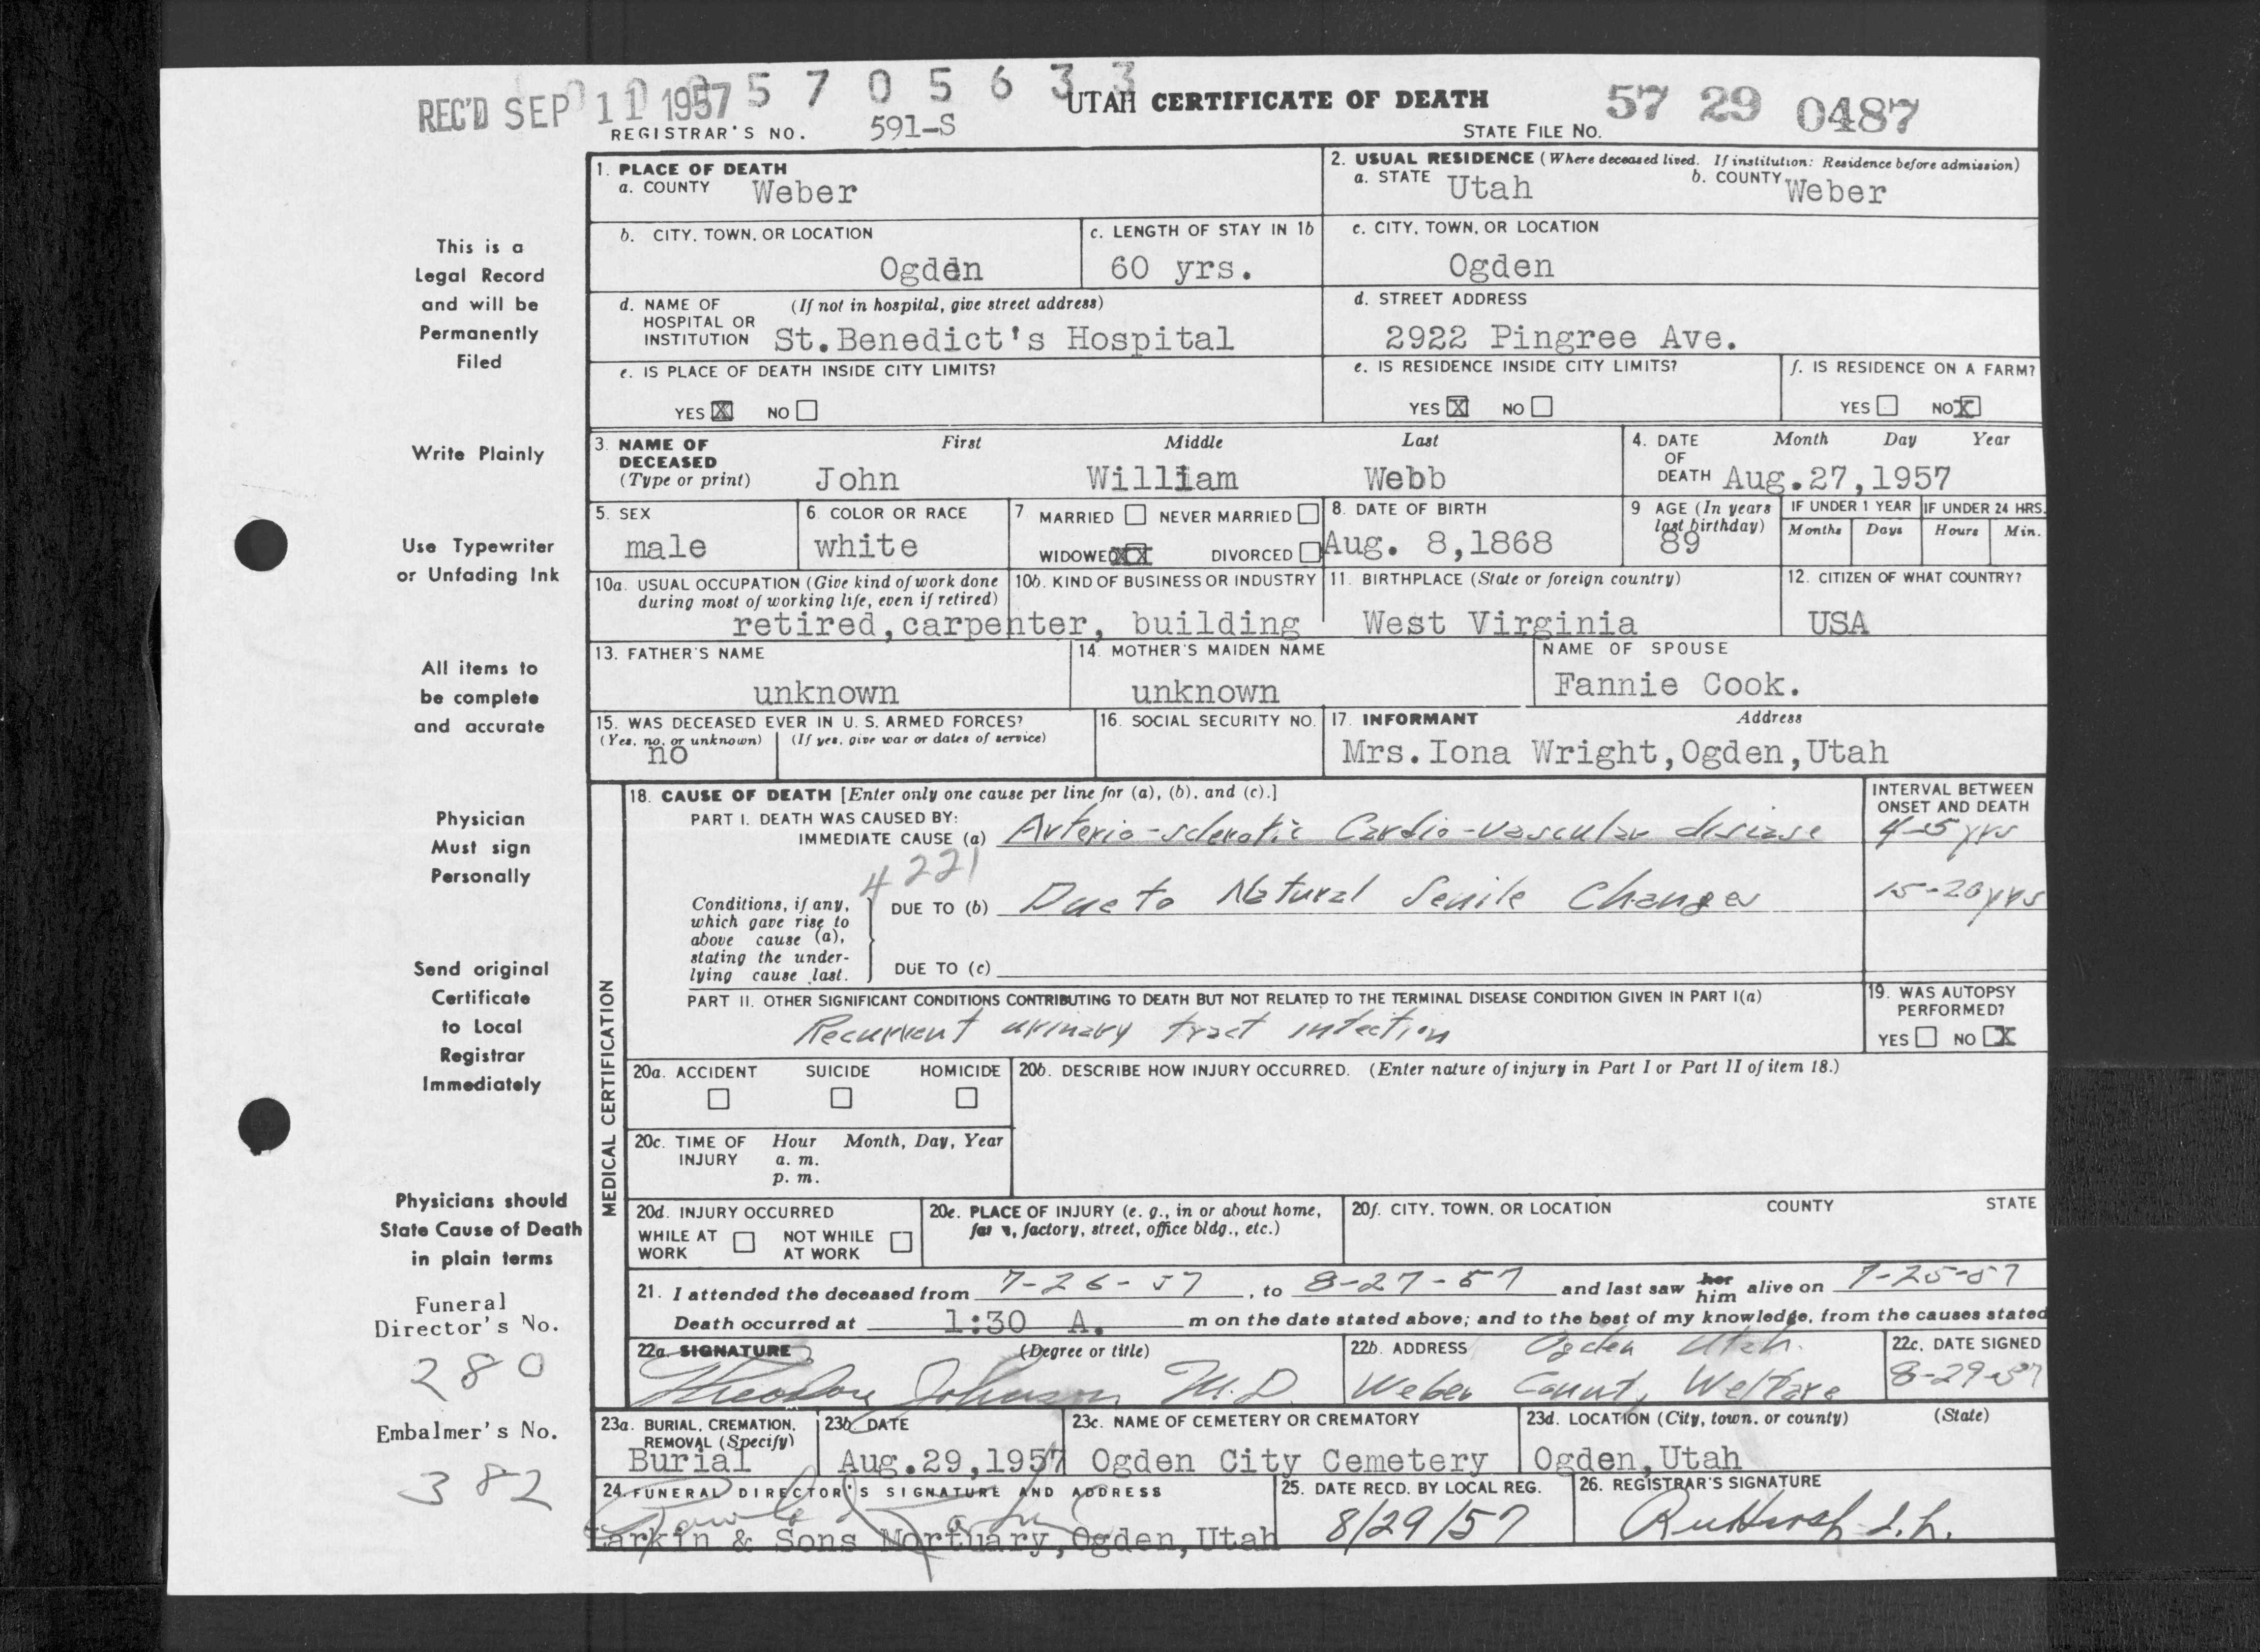 REC'D SEP 11 1957 5 7 0 5 6 3 3
UTAH CERTIFICATE OF DEATH
57 29 0487
REGISTRAR'S NO. 591-S
STATE FILE NO.
1. PLACE OF DEATH
a. COUNTY Weber
2. USUAL RESIDENCE (Where deceased lived. If institution: Residence before admission)
a. STATE Utah b. COUNTY Weber
b. CITY, TOWN, OR LOCATION
Ogden
c. LENGTH OF STAY IN 1b
60 yrs.
c. CITY, TOWN, OR LOCATION
Ogden
d. NAME OF HOSPITAL OR INSTITUTION (If not in hospital, give street address)
St.Benedict's Hospital
d. STREET ADDRESS
2922 Pingree Ave.
e. IS PLACE OF DEATH INSIDE CITY LIMITS?
YES X NO
e. IS RESIDENCE INSIDE CITY LIMITS?
YES X NO
f. IS RESIDENCE ON A FARM?
YES NO X
3. NAME OF DECEASED (Type or print)
First Middle Last
John William Webb
4. DATE OF DEATH Month Day Year
Aug.27,1957
5. SEX
male
6. COLOR OR RACE
white
7 MARRIED NEVER MARRIED
WIDOWED XX DIVORCED
8. DATE OF BIRTH
Aug. 8,1868
9 AGE (In years last birthday)
89
IF UNDER 1 YEAR
Months Days
IF UNDER 24 HRS.
Hours Min.
10a. USUAL OCCUPATION (Give kind of work done during most of working life, even if retired)
10b. KIND OF BUSINESS OR INDUSTRY
retired,carpenter, building
11. BIRTHPLACE (State or foreign country)
West Virginia
12. CITIZEN OF WHAT COUNTRY?
USA
13. FATHER'S NAME
unknown
14. MOTHER'S MAIDEN NAME
unknown
NAME OF SPOUSE
Fannie Cook.
15. WAS DECEASED EVER IN U. S. ARMED FORCES?
(Yes, no, or unknown) (If yes, give war or dates of service)
no
16. SOCIAL SECURITY NO.
17. INFORMANT Address
Mrs.Iona Wright,Ogden,Utah
MEDICAL CERTIFICATION
18. CAUSE OF DEATH [Enter only one cause per line for (a), (b), and (c).]
INTERVAL BETWEEN ONSET AND DEATH
PART I. DEATH WAS CAUSED BY:
IMMEDIATE CAUSE (a) Arterio-sclerotic Cardio-vascular disease 4-5 yrs
4221
Conditions, if any, which gave rise to above cause (a), stating the underlying cause last.
DUE TO (b) Due to Natural Senile Changes 15-20 yrs
DUE TO (c)
PART II. OTHER SIGNIFICANT CONDITIONS CONTRIBUTING TO DEATH BUT NOT RELATED TO THE TERMINAL DISEASE CONDITION GIVEN IN PART I(a)
Recurrent urinary tract infection
19. WAS AUTOPSY PERFORMED?
YES NO X
20a. ACCIDENT SUICIDE HOMICIDE
20b. DESCRIBE HOW INJURY OCCURRED. (Enter nature of injury in Part I or Part II of item 18.)
20c. TIME OF INJURY Hour Month, Day, Year
a. m.
p. m.
20d. INJURY OCCURRED
WHILE AT WORK NOT WHILE AT WORK
20e. PLACE OF INJURY (e. g., in or about home, farm, factory, street, office bldg., etc.)
20f. CITY, TOWN, OR LOCATION COUNTY STATE
21. I attended the deceased from 7-26-57, to 8-27-57 and last saw her him alive on 7-25-57
Death occurred at 1:30 A. m on the date stated above; and to the best of my knowledge, from the causes stated
22a. SIGNATURE (Degree or title)
Theodore Johnson M.D.
22b. ADDRESS Ogden Utah.
Weber County Welfare
22c. DATE SIGNED
8-29-57
23a. BURIAL, CREMATION, REMOVAL (Specify)
Burial
23b. DATE
Aug.29,1957
23c. NAME OF CEMETERY OR CREMATORY
Ogden City Cemetery
23d. LOCATION (City, town, or county) (State)
Ogden,Utah
24. FUNERAL DIRECTOR'S SIGNATURE AND ADDRESS
Larkin & Sons Mortuary,Ogden,Utah
25. DATE RECD. BY LOCAL REG.
8/29/57
26. REGISTRAR'S SIGNATURE
This is a
Legal Record
and will be
Permanently
Filed
Write Plainly
Use Typewriter
or Unfading Ink
All items to
be complete
and accurate
Physician
Must sign
Personally
Send original
Certificate
to Local
Registrar
Immediately
Physicians should
State Cause of Death
in plain terms
Funeral
Director's No.
280
Embalmer's No.
382